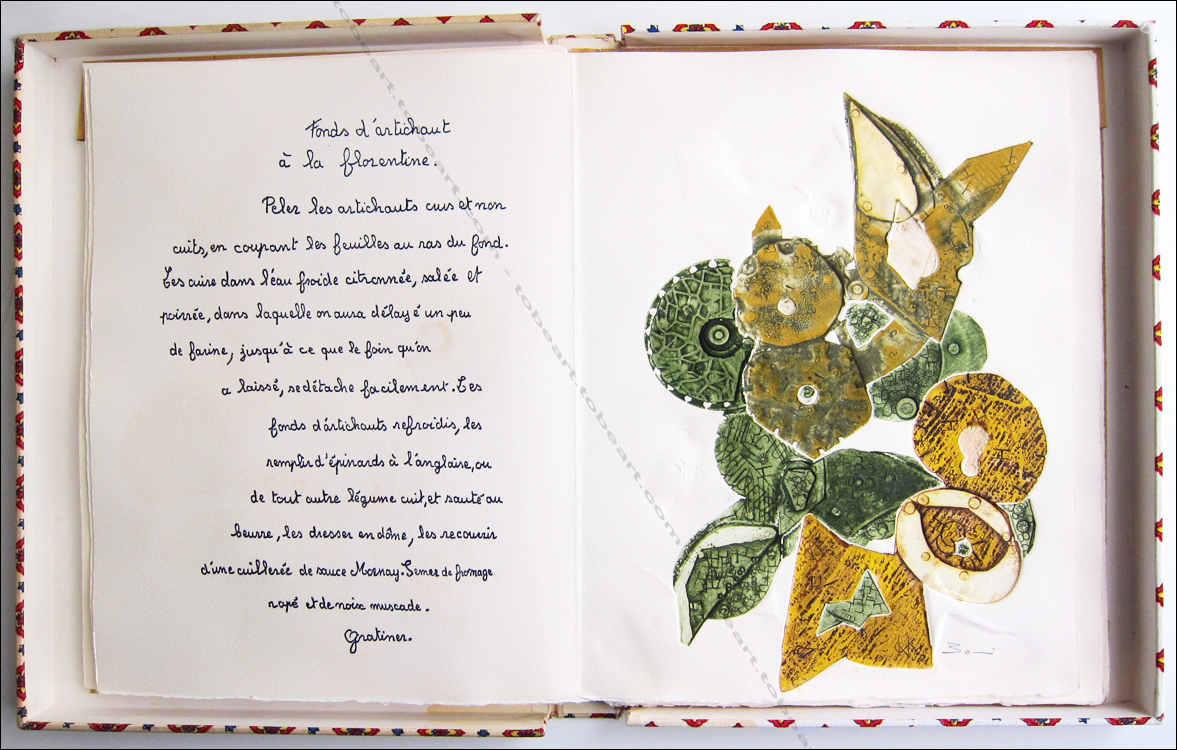 Fonds d'artichaut
à la florentine.
Peler les artichauts crus et non
cuits, en coupant les feuilles au ras du fond.
Les cuire dans l'eau froide citronnée, salée et
poivrée, dans laquelle on aura délayé un peu
de farine, jusqu'à ce que le foin qu'on
a laissé, se détache facilement. Les
fonds d'artichauts refroidis, les
remplir d'épinards à l'anglaise, ou
de tout autre légume cuit, et sauté au
beurre, les dresser en dôme, les recouvrir
d'une cuillerée de sauce Mornay. Semer de fromage
rapé et de noix muscade.
Gratiner.
tobeart.com - tobeart.com